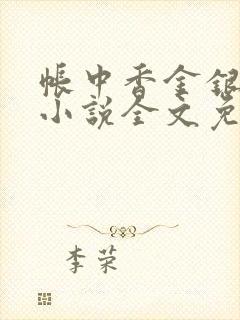 帐中香金银
小说全文免
李荣